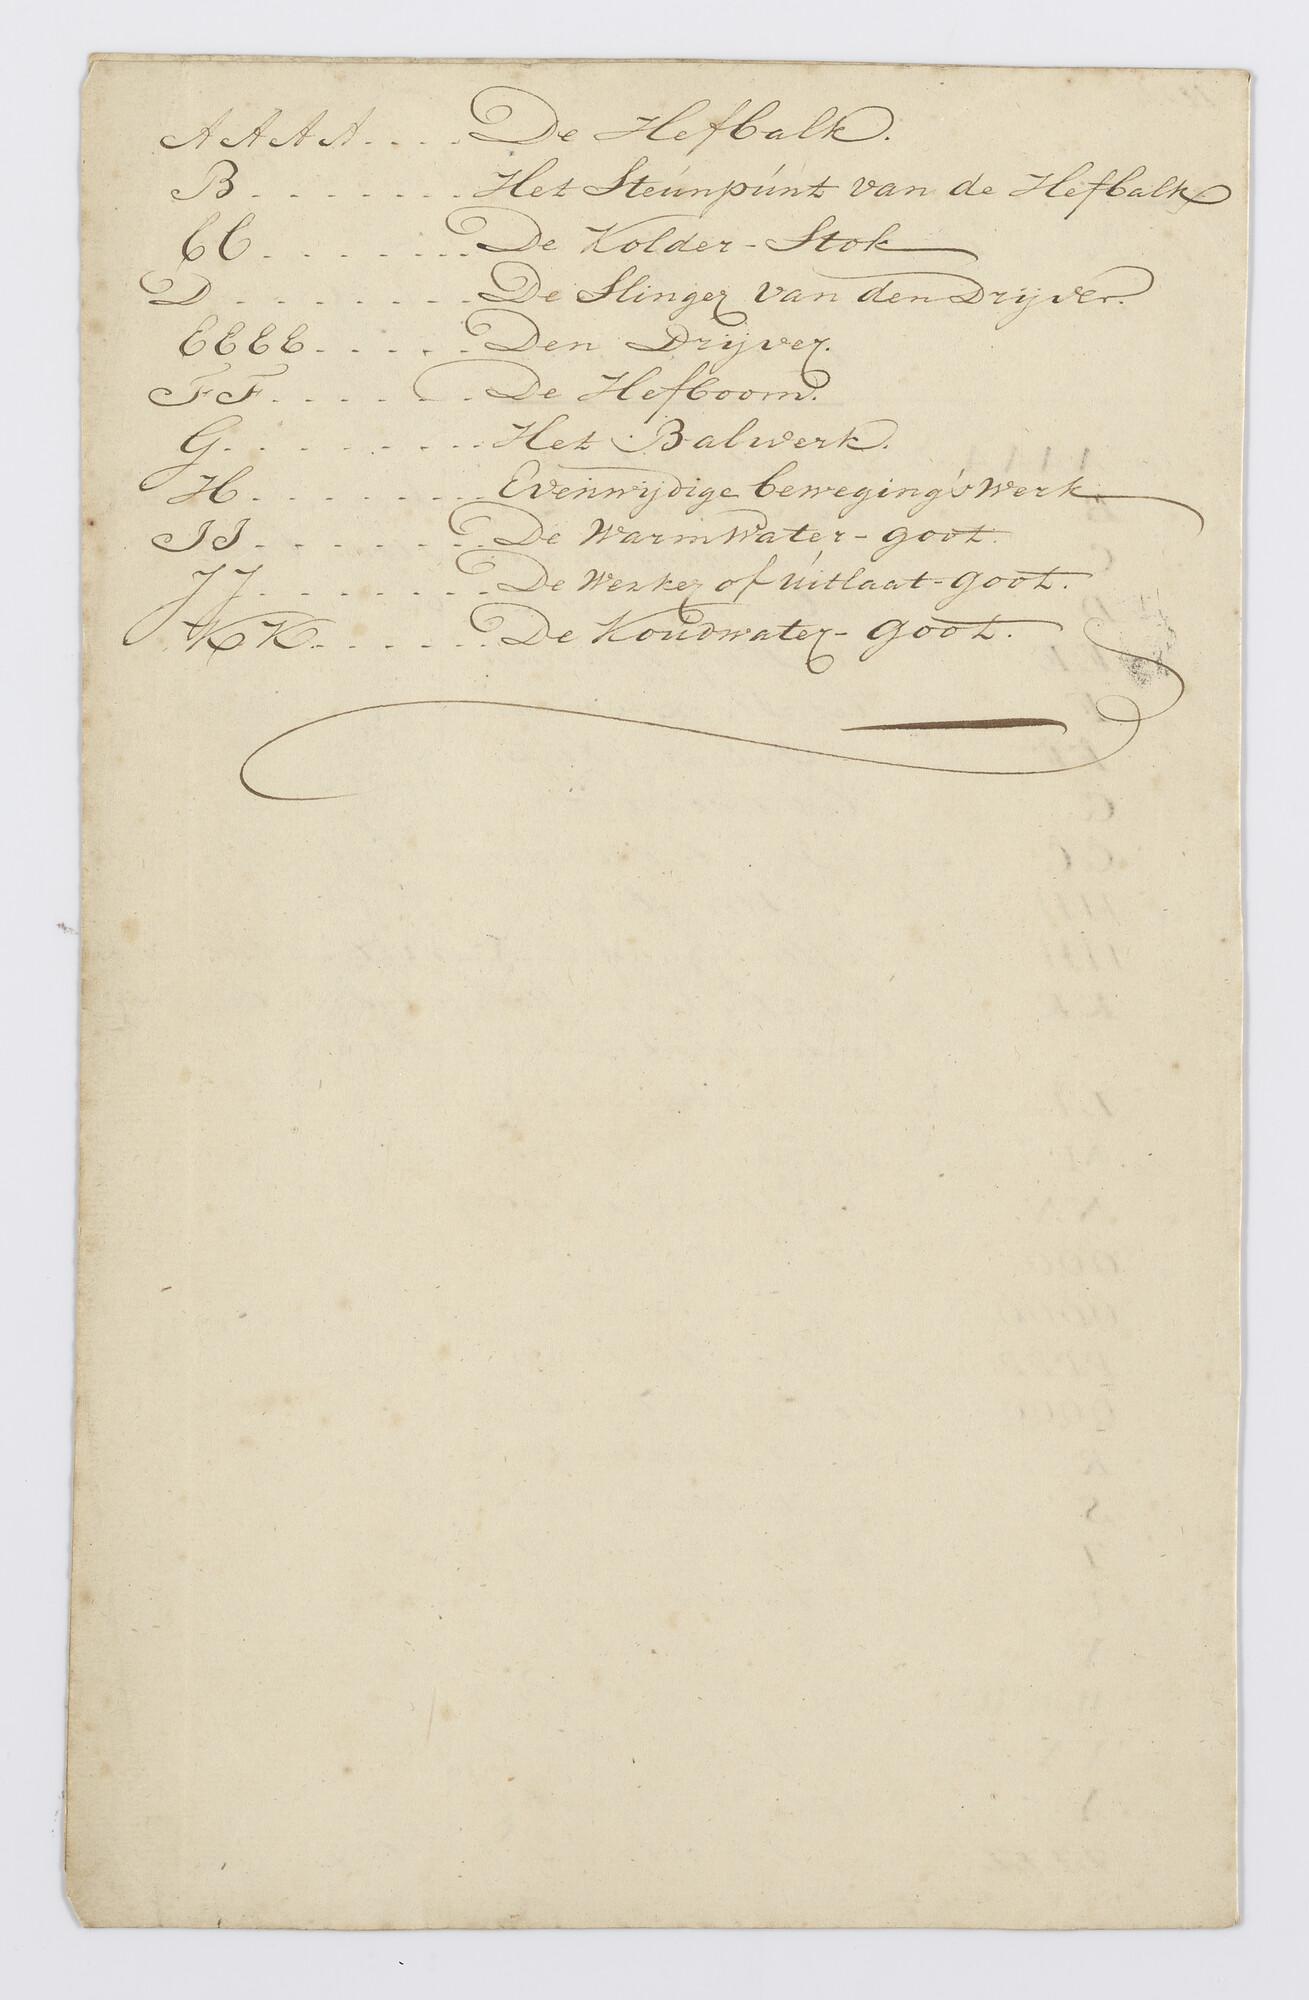 A A A A . . . . De Hefbalk.
B . . . . . . . Het Steúnpúnt van de Hefbalk
CC . . . . . . . . De Kolder-Stok
D . . . . . . . . De Slinger van den Drijver.
EEEE . . . . . Den Drijver.
FF . . . . . . . De Hefboom.
G . . . . . . . . Het Balwerk.
H . . . . . . . . Evenwijdige beweging's Werk.
II . . . . . . . . De Warmwater-goot.
JJ . . . . . . . . . De Werker of úitlaat-goot.
KK . . . . . . . De Koúdwater-goot.